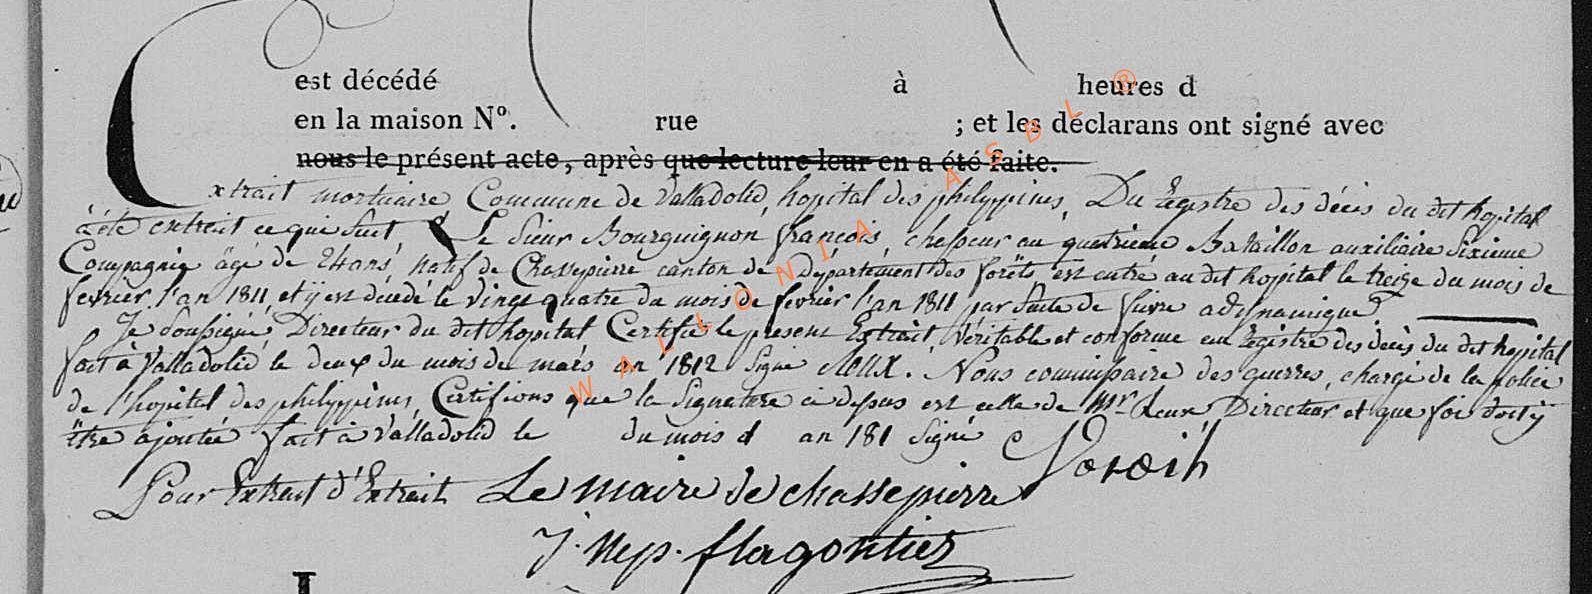 est décédé à heures d
en la maison N°. rue ; et les déclarans ont signé avec
nous le présent acte, après que lecture leur en a été faite.
Extrait mortuaire Commune de Valladolid, hopital des philyppines, Du Registre des décès du dit hopital
à été extrait ce qui suit Le Sieur Bourguignon françois, chasseur au quatrieme Bataillon auxiliaire Sixieme
Compagnie âgé de 24 ans, natif de Chassepierre canton de département des forêts, est entré au dit hopital le treize du mois de
fevrier l'an 1811, et ÿ est décédé le vingt quatre du mois de fevrier l'an 1811 par Suite de fievre adinamique
Je Soussigné, Directeur du dit hopital Certifie le present Extrait, Véritable et conforme au Registre des décès du dit hopital
fait à Valladolid le deux du mois de mars an 1812 Signé Leux. Nous commissaire des guerres, chargé de la police
de l'hopital des philyppines, Certifions que la Signature ci dessus est celle de Mr. Leux Directeur et que foi doit ÿ
être ajoutée fait à Valladolid le du mois d an 181 Signé
Pour Extrait d'Extrait Le maire de chassepierre
J. Nep. flagontier
WALLONIA ASBL ®